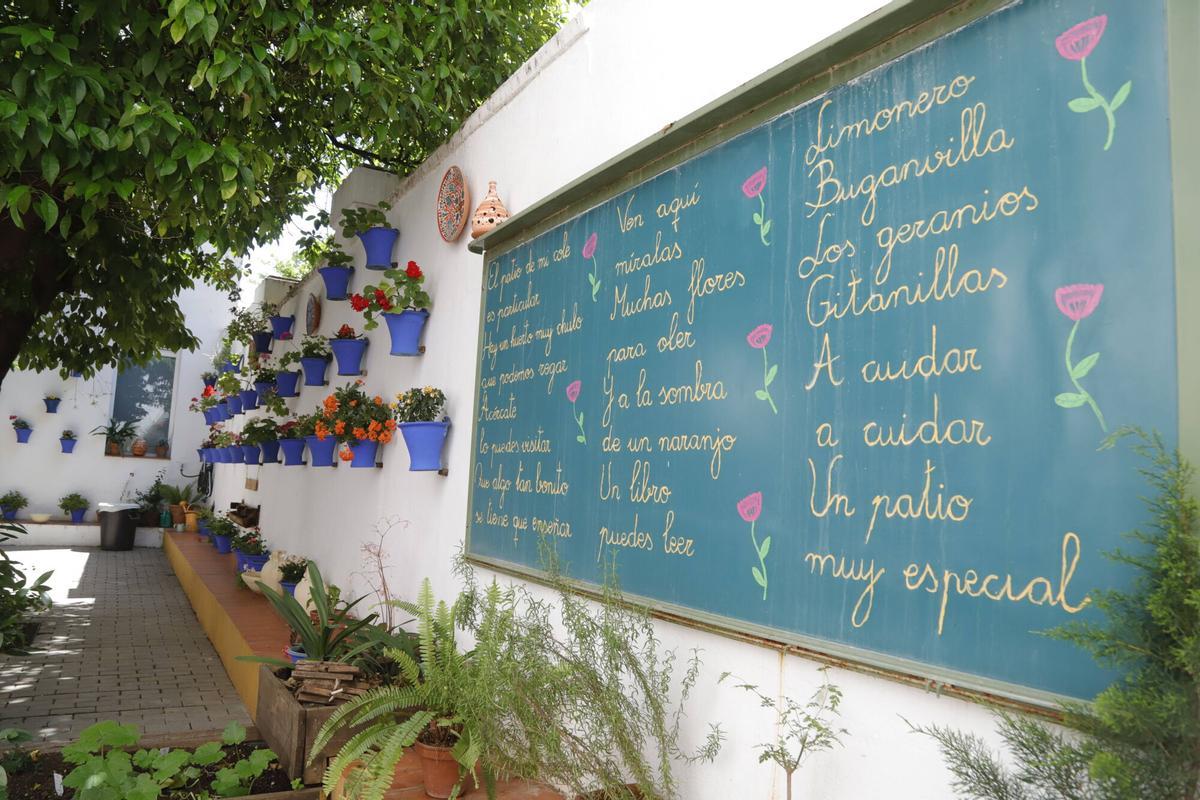 El patio de mi cole
es particular
Hay un huerto muy chulo
que podemos regar
Acércate
lo puedes visitar
Que algo tan bonito
se tiene que enseñar
Ven aquí
míralas
Muchas flores
para oler
Y a la sombra
de un naranjo
Un libro
puedes leer
Limonero
Buganvilla
Los geranios
Gitanillas
A cuidar
a cuidar
Un patio
muy especial